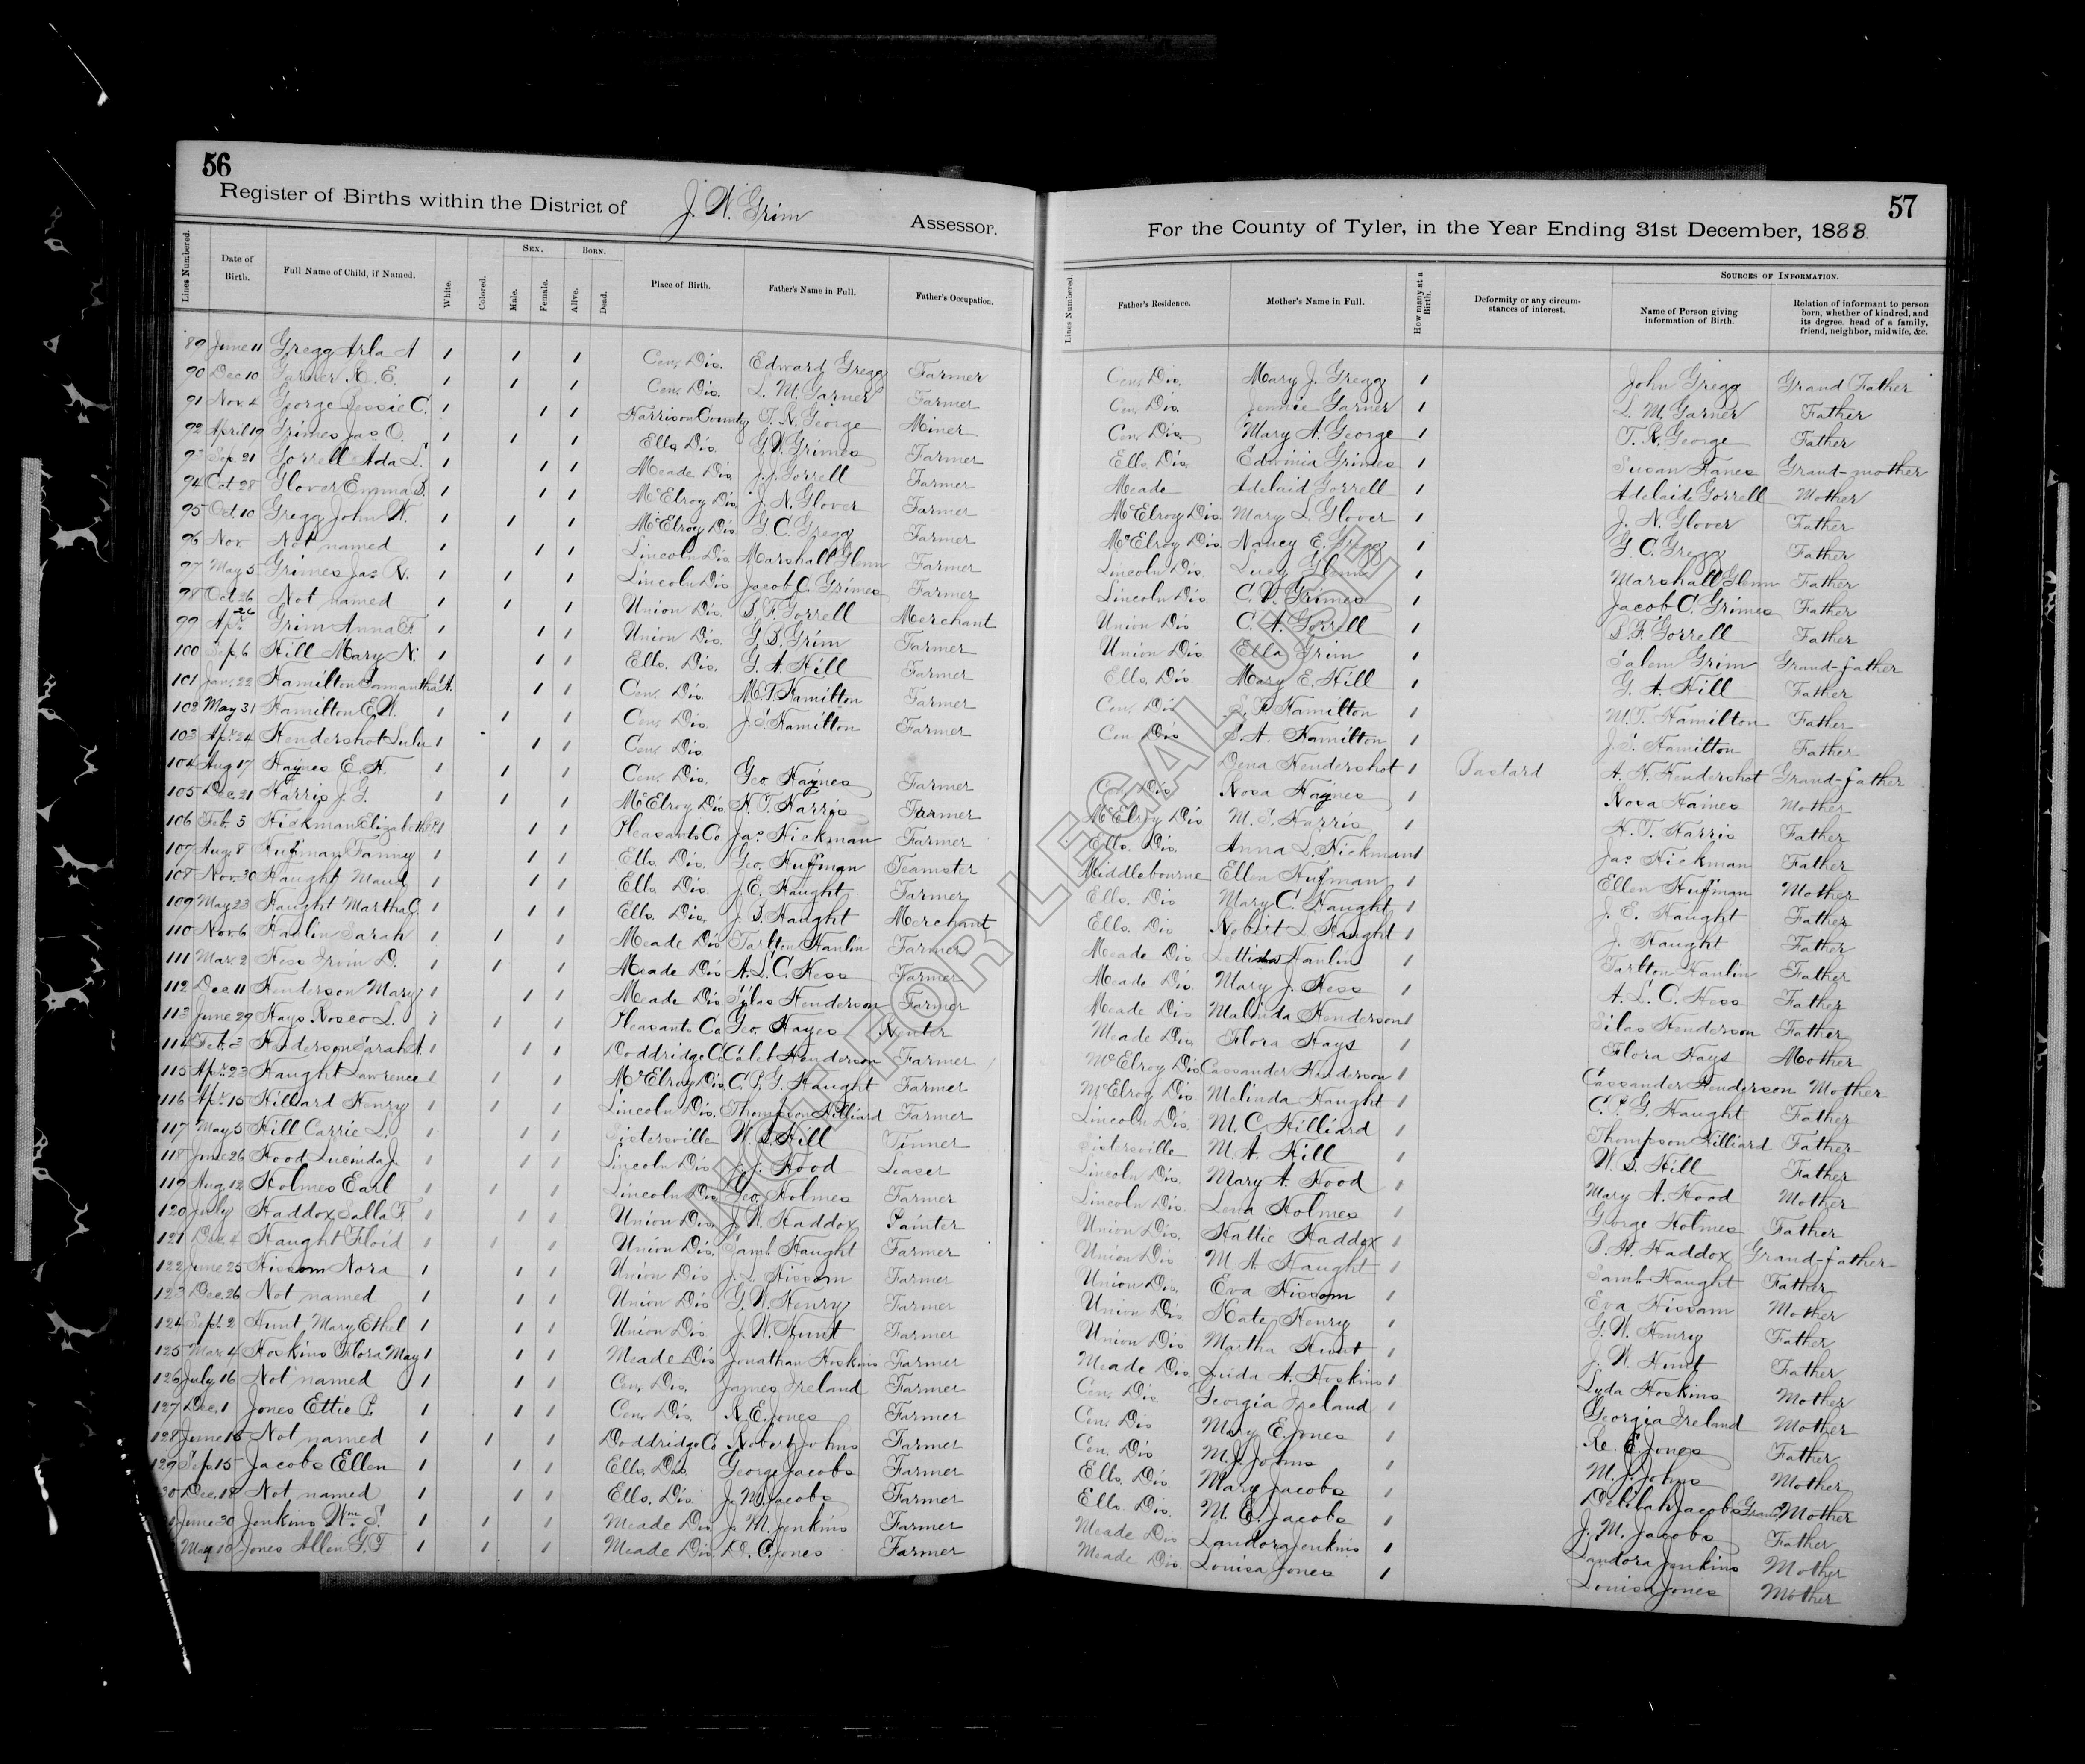 56
Register of Births within the District of J. W. Grim Assessor.
Lines Numbered. Date of Birth. Full Name of Child, if Named. White. Colored. Sex. Male. Female. Born. Alive. Dead. Place of Birth. Father's Name in Full. Father's Occupation.
89 June 11 Gregg Arla A 1 1 1 Cen. Dis. Edward Gregg Farmer
90 Dec 10 Garner R. E. 1 1 1 Cen. Dis. L. M. Garner Farmer
91 Nov. 4 George Bessie C. 1 1 1 Harrison County T. N. George Miner
92 April 19 Grimes Jas. O. 1 1 1 Ells. Dis. G. W. Grimes Farmer
93 Sep. 21 Gorrell Ada L. 1 1 1 Meade Dis J. J. Gorrell Farmer
94 Oct 28 Glover Emma B. 1 1 1 McElroy Dis J. N. Glover Farmer
95 Oct. 10 Gregg John W. 1 1 1 McElroy Dis G. C. Gregg Farmer
96 Nov. Not named 1 1 1 Lincoln Dis Marshall Glenn Farmer
97 May 5 Grimes Jas R. 1 1 1 Lincoln Dis Jacob C. Grimes Farmer
98 Oct 26 Not named 1 1 1 Union Dis. S. F. Gorrell Merchant
99 Apr. 26 Grim Anna F. 1 1 1 Union Dis. G. B. Grim Farmer
100 Sep 6 Hill Mary N. 1 1 1 Ells. Dis. G. A. Hill Farmer
101 Jan. 22 Hamilton Samantha A. 1 1 1 Cen. Dis. M. T. Hamilton Farmer
102 May 31 Hamilton E. W. 1 1 1 Cen. Dis. J. S. Hamilton Farmer
103 Apr. 24 Hendershot Lulu 1 1 1 Cen. Dis.
104 Aug 17 Haynes E. H. 1 1 1 Cen. Dis. Geo Haynes Farmer
105 Dec. 21 Harris J. G. 1 1 1 McElroy Dis H. T. Harris Farmer
106 Feb. 5 Hickman Elizabeth 1 1 1 Pleasants Co Jas. Hickman Farmer
107 Aug. 8 Huffman Fanny 1 1 1 Ells. Dis. Geo. Huffman Teamster
108 Nov. 30 Haught Maud 1 1 1 Ells. Dis. J. E. Haught Farmer
109 May 23 Haught Martha G. 1 1 1 Ells. Dis. J. B. Haught Merchant
110 Nov. 6 Hanlin Sarah 1 1 1 Meade Dis Tarlton Hanlin Farmer
111 Mar. 2 Hess Irvin D. 1 1 1 Meade Dis A. L. C. Hess Farmer
112 Dec 11 Henderson Mary 1 1 1 Meade Dis Sylas Henderson Farmer
113 June 29 Hays Rosco L. 1 1 1 Pleasants Co Geo. Hayes Renter
114 Feb. 3 Henderson Sarah A. 1 1 1 Doddridge Co Caleb Henderson Farmer
115 Apr. 23 Haught Lawrence 1 1 1 McElroy Dis. C. P. G. Haught Farmer
116 Apr. 15 Hilliard Henry 1 1 1 Lincoln Dis. Thompson Hilliard Farmer
117 May 5 Hill Carrie L. 1 1 1 Sistersville W. S. Hill Tinner
118 June 26 Hood Lucinda J. 1 1 1 Lincoln Dis J. J. Hood Leaser
119 Aug 12 Holmes Earl 1 1 1 Lincoln Dis. Geo. Holmes Farmer
120 July Haddox Salla F. 1 1 1 Union Dis. J. W. Haddox Painter
121 Dec. 4 Haught Floid 1 1 1 Union Dis. Saml. Haught Farmer
122 June 25 Hissom Nora 1 1 1 Union Dis J. L. Hissom Farmer
123 Dec. 26 Not named 1 1 1 Union Dis G. W. Henry Farmer
124 Sept. 2 Hunt, Mary Ethel 1 1 1 Union Dis J. W. Hunt Farmer
125 Mar. 4 Hoskins Flora May 1 1 1 Meade Dis Jonathan Hoskins Farmer
126 July 16 Not named 1 1 1 Cen. Dis. James Ireland Farmer
127 Dec. 1 Jones Ettie P. 1 1 1 Cen. Dis. R. E. Jones Farmer
128 June 15 Not named 1 1 1 Doddridge Co Robert Johns Farmer
129 Sep. 15 Jacobs Ellen 1 1 1 Ells. Dis. George Jacobs Farmer
30 Dec. 18 Not named 1 1 1 Ells. Dis J. M. Jacobs Farmer
June 30 Jenkins Wm. S. 1 1 1 Meade Dis J. M. Jenkins Farmer
May 10 Jones Allen G. T 1 1 1 Meade Dis. D. C. Jones Farmer
57
For the County of Tyler, in the Year Ending 31st December, 1888.
Lines Numbered. Father's Residence. Mother's Name in Full. How many at a Birth. Deformity or any circumstances of interest. Sources of Information. Name of Person giving information of Birth. Relation of informant to person born, whether of kindred, and its degree, head of a family, friend, neighbor, midwife, &c.
Cen. Dis. Mary J. Gregg 1 John Gregg Grand Father
Cen. Dis. Jennie Garner 1 L. M. Garner Father
Cen. Dis. Mary A. George 1 T. N. George Father
Ells. Dis. Edwinia Grimes 1 Susan Hanes Grand-mother
Meade Adelaid Gorrell 1 Adelaide Gorrell Mother
McElroy Dis. Mary L. Glover 1 J. N. Glover Father
McElroy Dis. Nancy E. Gregg 1 G. C. Gregg Father
Lincoln Dis. Lucy Glenn 1 Marshall Glenn Father
Lincoln Dis. C. V. Grimes 1 Jacob C. Grimes Father
Union Dis C. A. Gorrell 1 S. F. Gorrell Father
Union Dis Ella Grim 1 Salem Grim Grand-father
Ells. Dis. Mary E. Hill 1 G. A. Hill Father
Cen. Dis Hamilton 1 M. T. Hamilton Father
Cen Dis S. A. Hamilton 1 J. S. Hamilton Father
Dena Hendershot 1 Bastard A. H. Hendershot Grand-father
Cen. Dis Rosa Haynes 1 Rosa Haines Mother
McElroy Dis M. S. Harris 1 H. T. Harris Father
Ells. Dis. Anna L. Hickman 1 Jas Hickman Father
Middlebourne Ellen Huffman 1 Ellen Huffman Mother
Ells. Dis Mary C. Haught 1 J. E. Haught Father
Ells. Dis Robert L. Haught 1 J. Haught Father
Meade Dis Hanlin 1 Tarlton Hanlin Father
Meade Dis. Mary J. Hess 1 A. L. C. Hess Father
Meade Dis Malinda Henderson 1 Silas Henderson Father
Meade Dis Flora Hays 1 Flora Hays Mother
McElroy Dis Cassander Henderson 1 Cassander Henderson Mother
McElroy Dis. Melinda Haught 1 C. P. G. Haught Father
Lincoln Dis. M. C. Hilliard 1 Thompson Hilliard Father
Sistersville M. A. Hill 1 W. S. Hill Father
Lincoln Dis Mary A. Hood 1 Mary A. Hood Mother
Lincoln Dis. Lena Holmes 1 George Holmes Father
Union Dis. Hattie Haddox 1 B. H. Haddox Grand-father
Union Dis M. A Haught 1 Saml. Haught Father
Union Dis. Eva Hissom 1 Eva Hissam Mother
Union Dis. Kate Henry 1 G. W. Henry Father
Union Dis Martha Hunt 1 J. W. Hunt Father
Meade Dis Luida A. Hoskins 1 Lyda Hoskins Mother
Cen. Dis. Georgia Ireland 1 Georgia Ireland Mother
Cen. Dis Mary E. Jones 1 R. E. Jones Father
Cen. Dis M. J. Johns 1 M. J. Johns Mother
Ells. Dis Mary Jacobs 1 Delilah Jacobs Grand Mother
Ells. Dis. M. E. Jacobs 1 J. M. Jacobs Father
Meade Dis Landora Jenkins 1 Landora Jenkins Mother
Meade Dis. Louisa Jones 1 Louisa Jones Mother
NOT FOR LEGAL USE